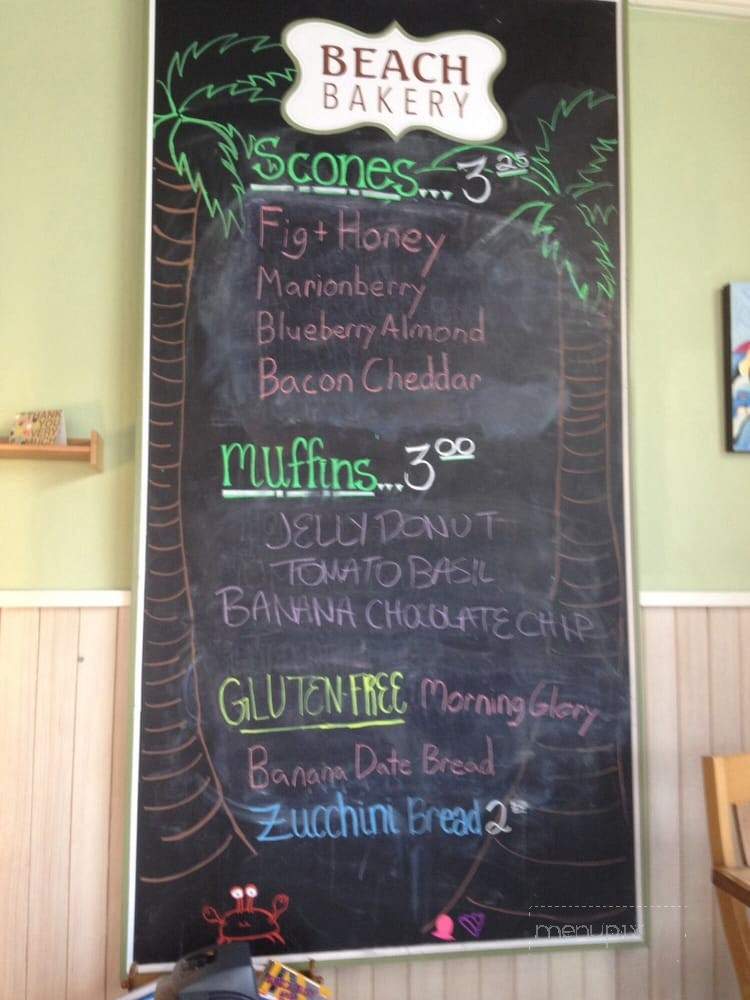 BEACH
BAKERY
Scones... 3.25
Fig + Honey
Marionberry
Blueberry Almond
Bacon Cheddar
THANK
YOU
VERY
MUCH
muffins... 3.00
JELLY DONUT
TOMATO BASIL
BANANA CHOCOLATE CHIP
GLUTEN-FREE Morning Glory
Banana Date Bread
Zucchini Bread 2
menupix